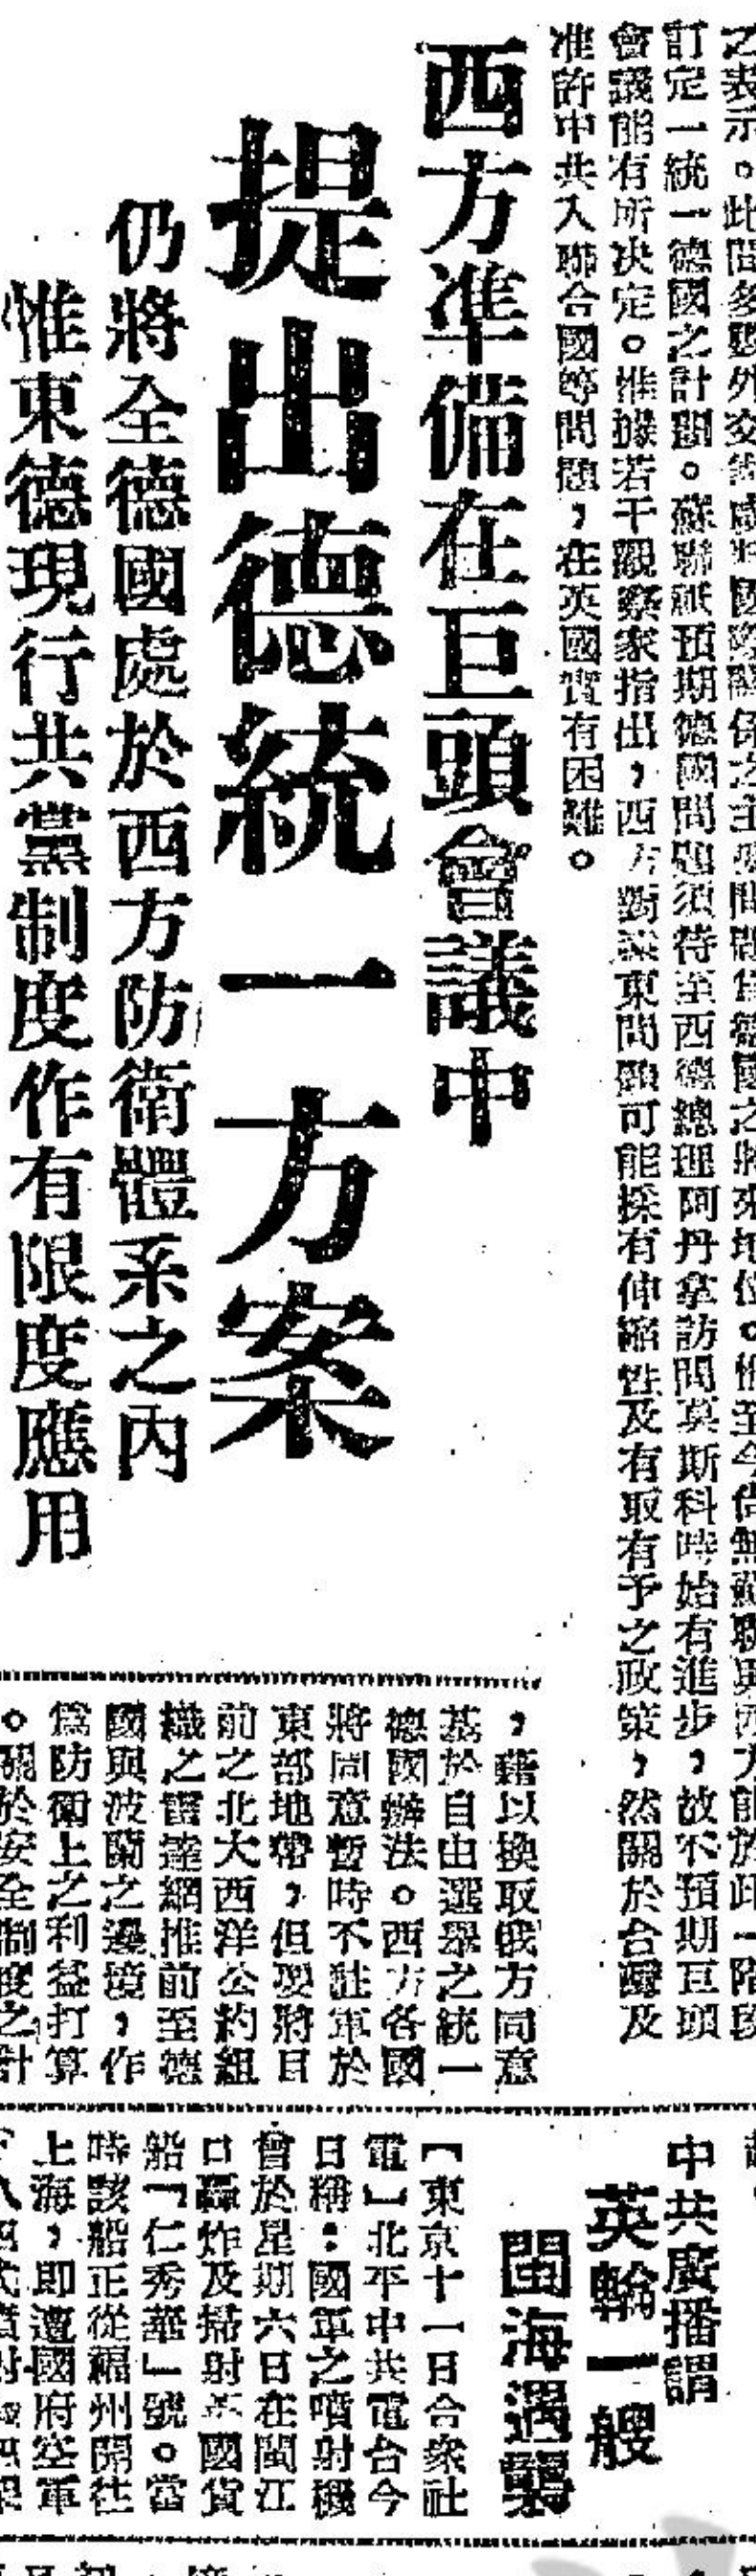 之表示。此間多數外交
訂定一統一德國之計劃。蘇聯祇預期德國問題須待至西德總理阿丹拿訪問莫斯科時始有進步,故不預期巨頭
會議能有所決定。惟據若干觀察家指出,西方對遠東問題可能採有伸縮性及有取有予之政策,然關於台灣及
准許中共入聯合國等問題,在英國實有困難。
西方準備在巨頭會議中
提出德統一方案
仍將全德國處於西方防衛體系之內
惟東德現行共黨制度作有限度應用
,藉以換取俄方同意
基於自由選舉之統一
德國辦法。西方各國
將同意暫時不駐軍於
東部地帶,但要將目
前之北大西洋公約組
織之雷達網推前至德
國與波蘭之邊境,作
為防衛上之利益打算
。關於安全制度之計
中共廣播謂
英輪一艘
閩海遇襲
【東京十一日合衆社
電】北平中共電台今
日稱:國軍之噴射機
曾於星期六日在閩江
口轟炸及掃射英國貨
船「仁秀華」號。當
時該船正從福州開往
上海,即遭國府空軍